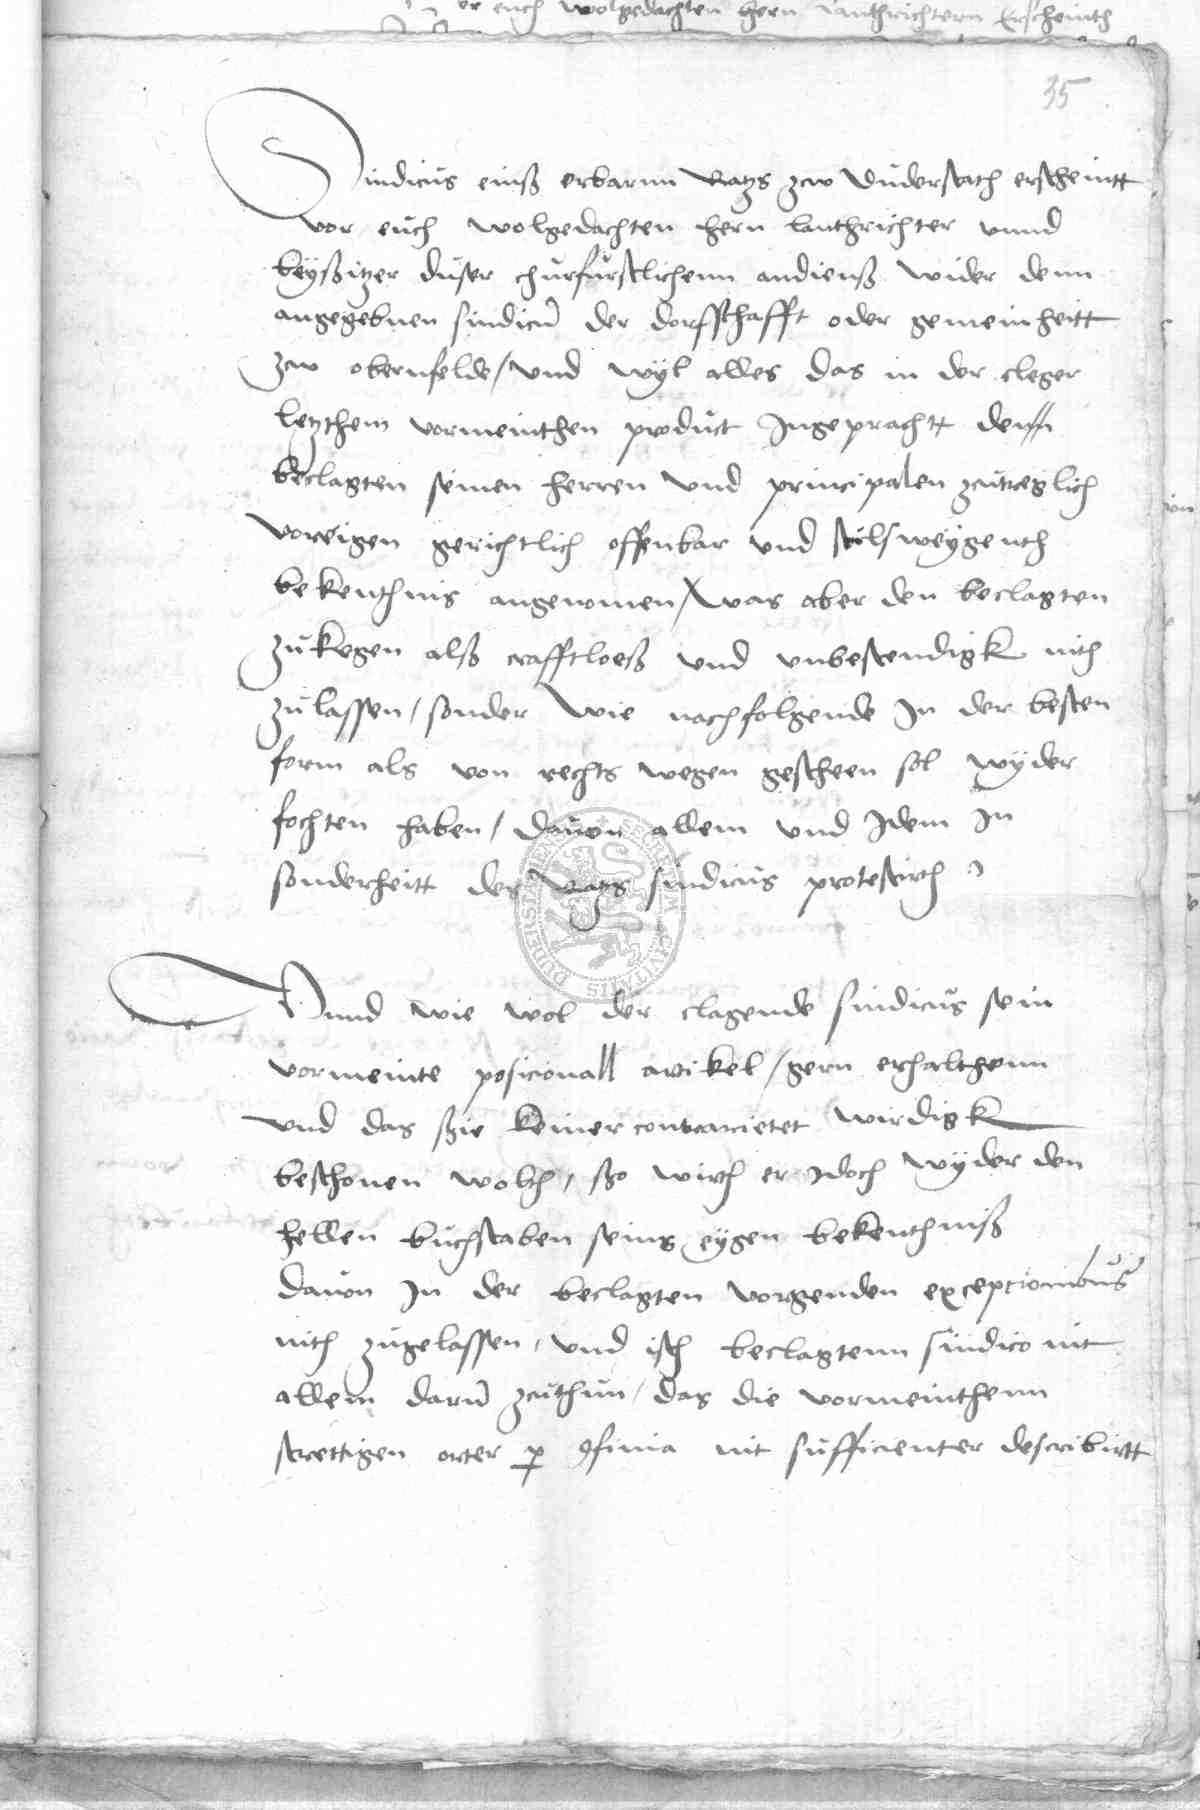 er euch wolgedachten hern Lanthrichtern Erscheinth
35
Sindicus einß erbarnn Ratzs zcw Duderstath erscheintt
vor euch wolgedachten hern lanthrichter vnnd
beÿßitzer dußer churfurstlichenn audienß wider denn
angegebnen sindicũ der dorffschafft oder gemeinheitt
zcw obernfelde / vnd wÿl alles das in der cleger
letzthem vormeinthen product Ingeprachtt denn
beclagten seinen herren vnd principalen zcutreglich
vor eigen gerichtlich offenbar vnd stilsweÿgenth
bekenthnis angenomen / was aber den beclagten
zukegen alß crafftloeß vnd vnbestendigk nith
zulassen / sonder wie nachfolgende In der besten
form als von rechts wegen gescheen sol wÿder
fochten haben / dauon allem vnd Idem In
sonderheitt der Ratzs sindicus protestirth
DUDERSTADENSIS SECRETUM CIVITATIS
Vnnd wie wol der clagende sindicus sein
vormeinte posicionall artikel / gern erhalthenn
vnd das ßie keiner contrarietet wirdigk
beschonen wolth / ßo wirth er Idoch wÿder den
hellen buchstaben seins eÿgen bekenthniß
dauon In der beclagten vorgenden exceptionibus
nith zugelassen / vnd isth beclagtenn sindico nit
allein darũ zcuthun / das die vormeinthenn
strettigen orter ꝑ ꝯfinia nit sufficienter describirtt